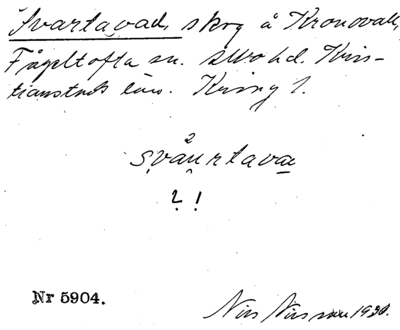 Svartavad, skog å Kronovall,
Fågeltofta sn. Albo hd. Kris-
tianstads län. Kring 1.
2
svåurtavaa
? !
Nr 5904.
Nils Nilsson 1930.